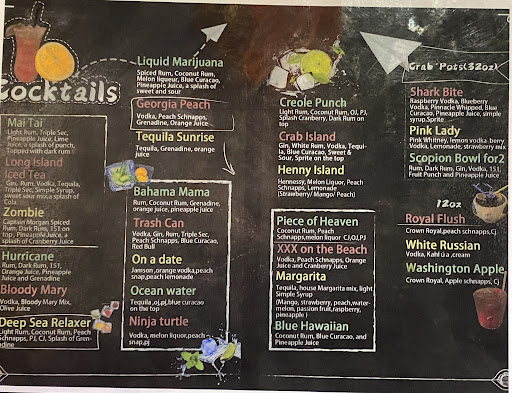 Cocktails
Mai Tai
Light Rum, Triple Sec,
Pineapple Juice, Lime
Juice, a splash of punch,
Topped with dark rum
Long Island
Iced Tea
Gin, Rum, Vodka, Tequila,
Triple Sec, Simple Syrup,
sweet sour mix,a splash of
Cola
Zombie
Captain Morgan Spiced
Rum, Dark Rum, 151 on
top, Pineapple Juice, a
splash of Cranberry Juice
Hurricane
Rum, Dark Rum, 151,
Orange Juice, Pineapple
Juice and Grenadine
Bloody Mary
Vodka, Bloody Mary Mix,
Olive Juice
Deep Sea Relaxer
Light Rum, Coconut Rum, Peach
Schnapps, PJ, CJ, Splash of Gren-
adine
Liquid Marijuana
Spiced Rum, Coconut Rum,
Melon liqueur, Blue Curacao,
Pineapple Juice, a splash of
sweet and sour
Georgia Peach
Vodka, Peach Schnapps,
Grenadine, Orange Juice
Tequila Sunrise
Tequila, Grenadine, orange
juice
Bahama Mama
Rum, Coconut Rum, Grenadine,
orange juice, pineapple juice
Trash Can
Vodka, Gin, Rum, Triple Sec,
Peach Schnapps, Blue Curacao,
Red Bull
On a date
Jamson ,orange vodka,peach
snap,peach lemonade
Ocean water
Tequila ,oj,pj,blue curacao
on the top
Ninja turtle
Vodka, melon liquor,peach
snap,pj
Creole Punch
Light Rum, Coconut Rum, OJ, PJ,
Splash Cranberry, Dark Rum on
top
Crab Island
Gin, White Rum, Vodka, Tequi-
la, Blue Curacao, Sweet &
Sour, Sprite on the top
Henny Island
Hennessy, Melon Liquor, Peach
Schnapps, Lemonade
(Strawberry/ Mango/ Peach)
Piece of Heaven
Coconut Rum, Peach
Schnapps,melon liquor CJ,OJ,PJ
XXX on the Beach
Vodka, Peach Schnapps, Orange
Juice and Cranberry Juice
Margarita
Tequila, house Margarita mix, light
Simple Syrup
(Mango, strawberry, peach,water-
melon, passion fruit,raspberry,
pineapple )
Blue Hawaiian
Coconut Rum, Blue Curacao, and
Pineapple Juice
Crab Pots(32oz)
Shark Bite
Raspberry Vodka, Blueberry
Vodka, Pinnacle Whipped, Blue
Curacao, Pineapple Juice, simple
syrup,Sprite
Pink Lady
Pink Whitney, lemon vodka ,berry
Vodka, Lemonade, strawberry mix
Scopion Bowl for2
Rum, Dark Rum, Gin, Vodka, 151,
Fruit Punch and Pineapple Juice
12oz
Royal Flush
Crown Royal,peach schnapps,CJ
White Russian
Vodka, Kahlúa ,cream
Washington Apple
Crown Royal, Apple schnapps, CJ